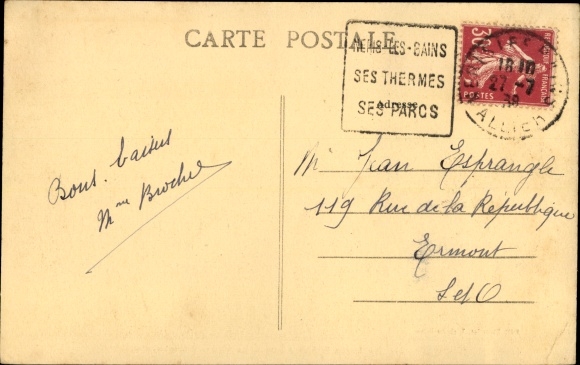 CARTE POSTALE
NERIS-LES-BAINS
SES THERMES
Adresse
SES PARCS
18 10
27 -7
38
ALLIER
POSTES
Bons baisers
Mme Brochet
Mr Jean Esprangle
119 Rue de la République
Ermont
S et O